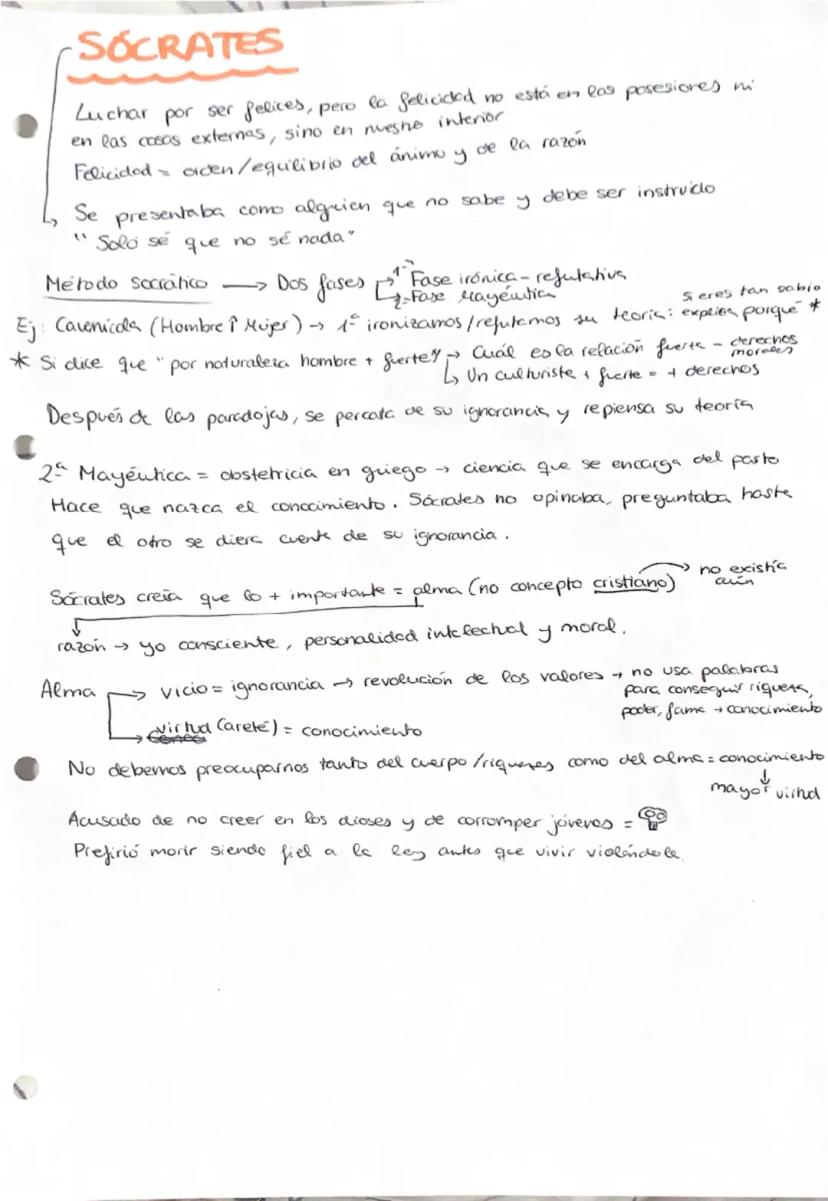 SÓCRATES
Luchar por ser felices, pero la felicidad no está en las posesiones ni
en las cosas externas, sino en nuestro interior
Felicidad = orden/equilibrio del ánimo y de la razón
↳ Se presentaba como alguien que no sabe y debe ser instruido
"Solo sé que no sé nada"
Método socrático → Dos fases 1ª Fase irónica - refutativa
2ª Fase Mayéutica
Ej: Cavernícola (Hombre ↑ Mujer) → 1º ironizamos/refutamos su teoría: si eres tan sabio explica porqué *
* Si dice que "por naturaleza hombre + fuerte" → Cuál es la relación fuerte - derechos morales
↳ Un culturista + fuerte = + derechos
Después de las paradojas, se percata de su ignorancia y repiensa su teoría
2ª Mayéutica = obstetricia en griego → ciencia que se encarga del parto
Hace que nazca el conocimiento. Sócrates no opinaba, preguntaba hasta
que el otro se diera cuenta de su ignorancia.
Sócrates creía que lo + importante = alma (no concepto cristiano) → no existía aún
razón → yo consciente, personalidad intelectual y moral.
Alma → vicio = ignorancia → revolución de los valores → no usa palabras
para conseguir riqueza,
poder, fama → conocimiento
→ virtud (areté) = conocimiento
No debemos preocuparnos tanto del cuerpo/riquezas como del alma = conocimiento
↓
mayor virtud
Acusado de no creer en los dioses y de corromper jóvenes =
Prefirió morir siendo fiel a la ley antes que vivir violándola.